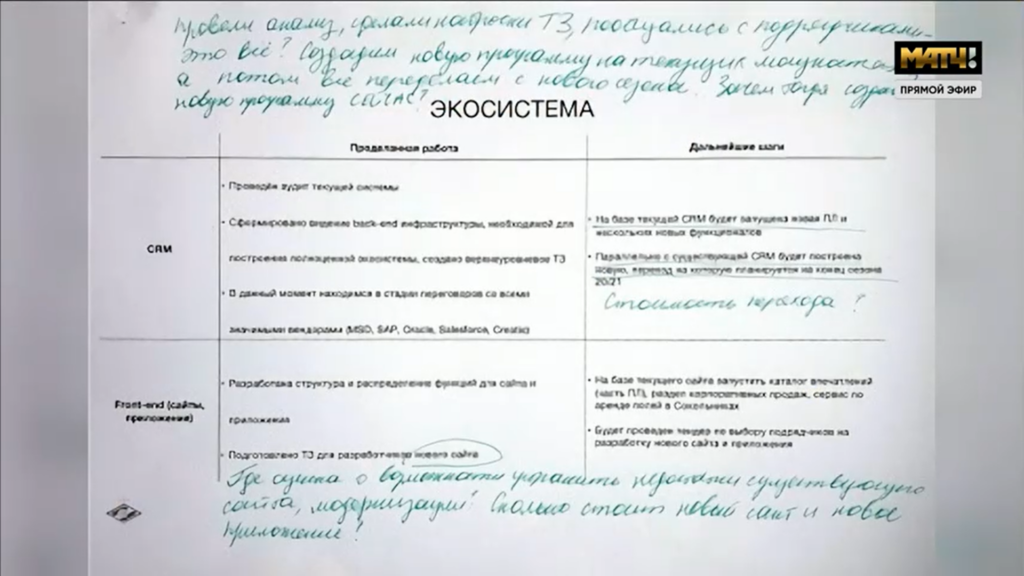 Провели анализ, сделали наброски ТЗ, пообщались с подрядчиками -
это всё? Создадим новую программу на текущих мощностях,
а потом всё переделаем с нового сезона. Зачем тогда
новую программу СЕЙЧАС?
МАТЧ!
ПРЯМОЙ ЭФИР
ЭКОСИСТЕМА
Проделанная работа
Дальнейшие шаги
CRM
• Проведён аудит текущей системы
• Сформировано видение back-end инфраструктуры, необходимой для
построения полноценной экосистемы, создано верхнеуровневое ТЗ
• В данный момент находимся в стадии переговоров со всеми
значимыми вендорами (MSD, SAP, Oracle, Salesforce, Creatio)
• На базе текущей CRM будет запущена новая ПЛ и
несколько новых функционалов
• Параллельно с существующей CRM будет построена
новую, переход на которую планируется на конец сезона
20/21
Стоимость перехода?
Front-end (сайты,
приложения)
• Разработана структура и распределение функций для сайта и
приложения
• Подготовлено ТЗ для разработчиков нового сайта
• На базе текущего сайта запустить каталог впечатлений
(часть ПЛ), раздел корпоративных продаж, сервис по
аренде полей в Сокольниках
• Будет проведен тендер по выбору подрядчиков на
разработку нового сайта и приложения
Где оценка о возможности устранить недостатки существующего
сайта, модернизации? Сколько стоит новый сайт и новое
приложение?